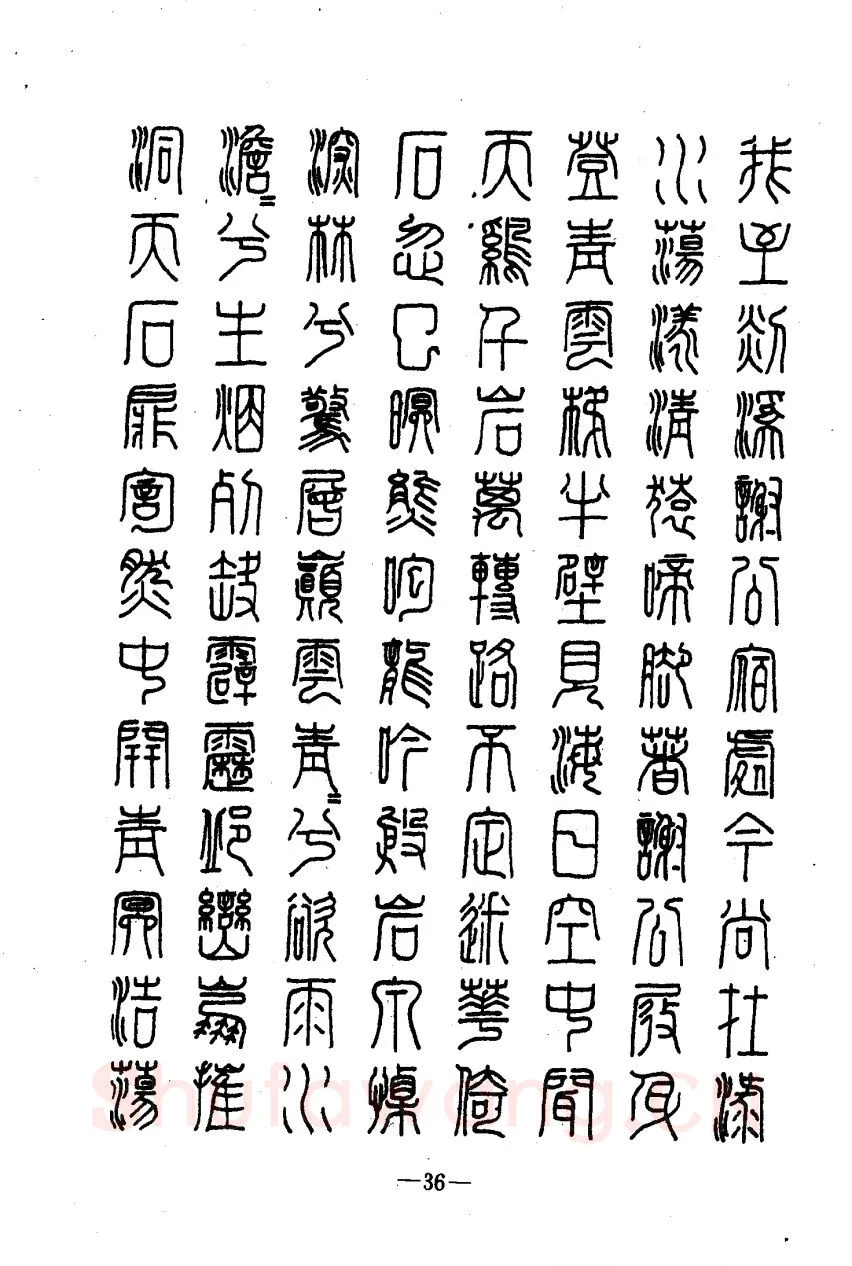 我至剡溪謝公宿處今尚在渌
水蕩漾清猿啼脚著謝公屐身
登青雲梯半壁見海日空中聞
天鷄千岩萬轉路不定迷華倚
石忽已暝熊咆龍吟殷岩泉慄
深林兮驚層巔雲青〻兮欲雨水
澹〻兮生烟列缺霹靂邱巒崩摧
洞天石扉訇然中開青冥浩蕩
—36—
Shufawang.cn